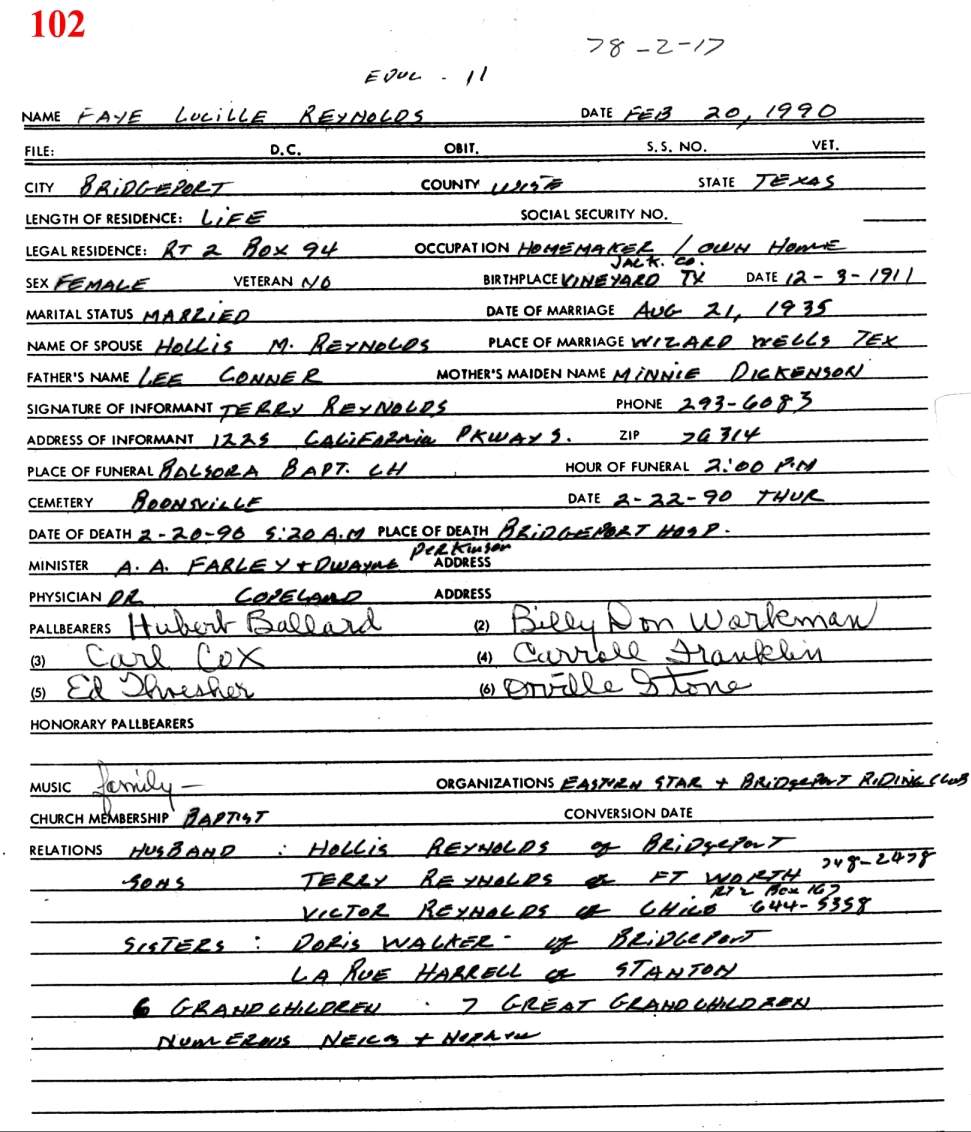 102
78-2-17
EDUC - 11
NAME FAYE LUCILLE REYNOLDS DATE FEB 20, 1990
FILE: D.C. OBIT. S.S. NO. VET.
CITY BRIDGEPORT COUNTY WISE STATE TEXAS
LENGTH OF RESIDENCE: LIFE SOCIAL SECURITY NO.
LEGAL RESIDENCE: RT 2 BOX 94 OCCUPATION HOMEMAKER / OWN HOME
JACK. CO.
SEX FEMALE VETERAN NO BIRTHPLACE VINEYARD TX DATE 12-3-1911
MARITAL STATUS MARRIED DATE OF MARRIAGE AUG 21, 1935
NAME OF SPOUSE HOLLIS M. REYNOLDS PLACE OF MARRIAGE WIZARD WELLS TEX
FATHER'S NAME LEE CONNER MOTHER'S MAIDEN NAME MINNIE DICKENSON
SIGNATURE OF INFORMANT TERRY REYNOLDS PHONE 293-6083
ADDRESS OF INFORMANT 1225 CALIFORNIA PKWAY S. ZIP 76314
PLACE OF FUNERAL BALSORA BAPT. CH HOUR OF FUNERAL 2:00 P.M
CEMETERY BOONSVILLE DATE 2-22-90 THUR
DATE OF DEATH 2-20-90 5:20 A.M PLACE OF DEATH BRIDGEPORT HOSP.
PERKINSON
MINISTER A. A. FARLEY + DWAYNE ADDRESS
PHYSICIAN DR COPELAND ADDRESS
PALLBEARERS Hubert Ballard (2) Billy Don Workman
(3) Carl Cox (4) Carroll Franklin
(5) Ed Thresher (6) Orville Stone
HONORARY PALLBEARERS
MUSIC family — ORGANIZATIONS EASTERN STAR + BRIDGEPORT RIDING CLUB
CHURCH MEMBERSHIP BAPTIST CONVERSION DATE
RELATIONS HUSBAND : HOLLIS REYNOLDS of BRIDGEPORT
SONS TERRY REYNOLDS of FT WORTH
RT 2 Box 167
VICTOR REYNOLDS of CHICO 644-5358
SISTERS : DORIS WALKER - of BRIDGEPORT
LA RUE HARRELL of STANTON
6 GRANDCHILDREN . 7 GREAT GRANDCHILDREN
NUMEROUS